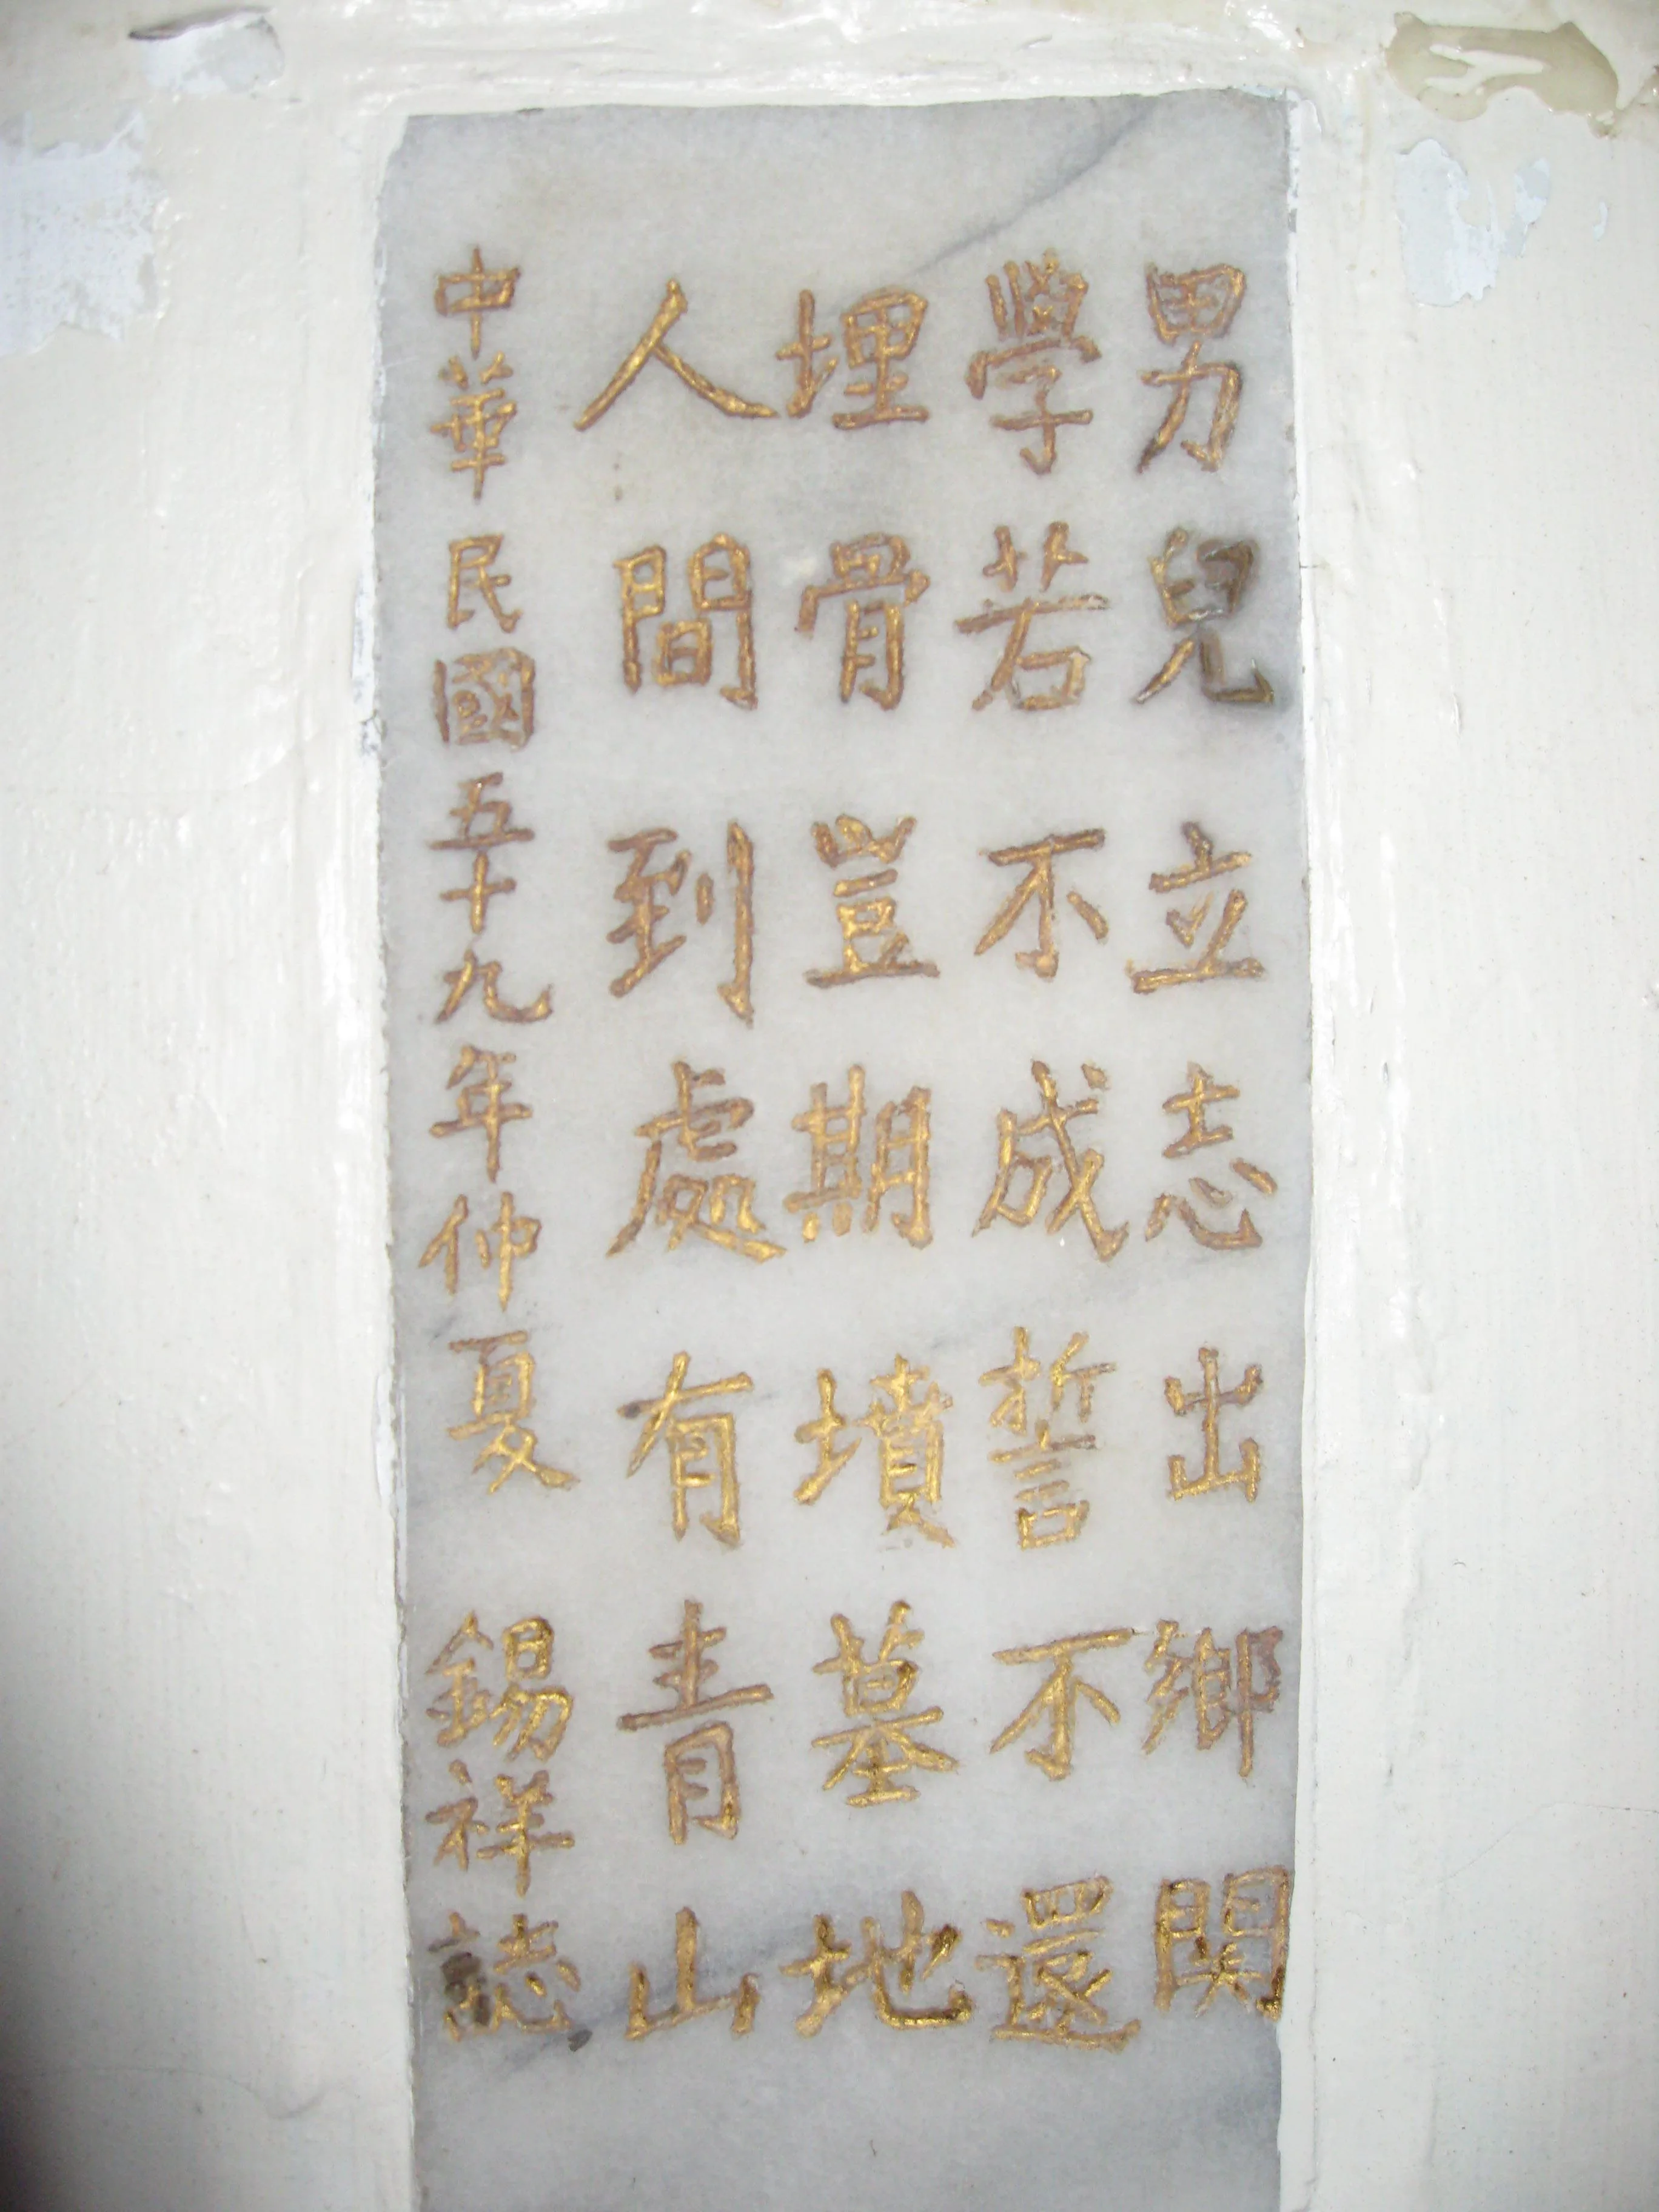 男兒立志出鄉関
學若不成誓不還
埋骨豈期墳墓地
人間到處有青山
中華民國五十九年仲夏 錫祥誌